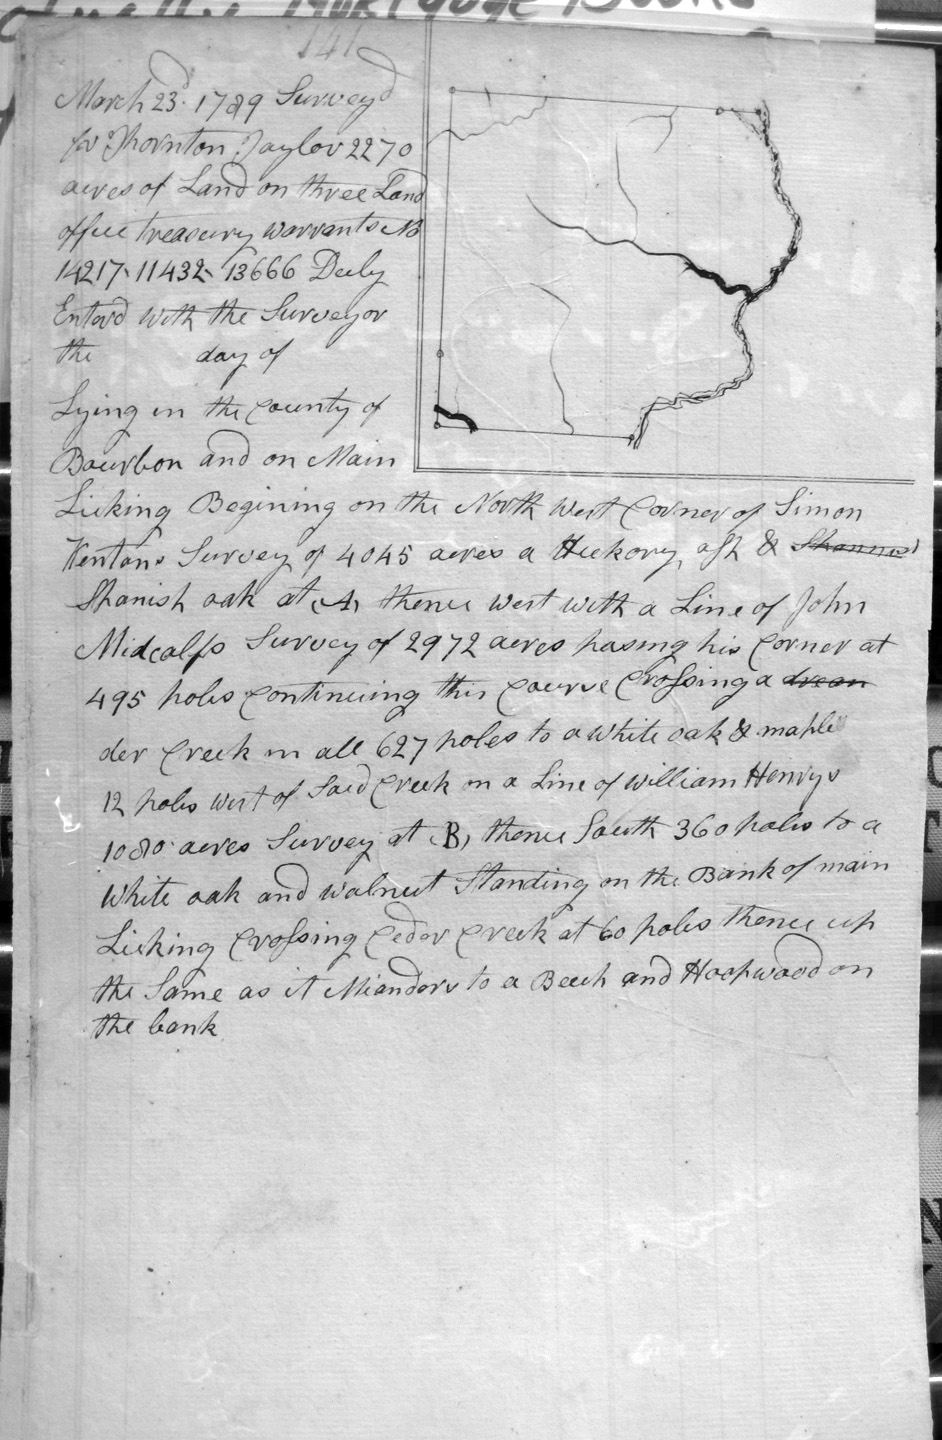 Mortgage Books
141
March 23d. 1789 Surveyd
for Thornton Taylor 2270
acres of Land on three Land
office treasury warrants No
14217. 11432. 13666 Duly
Enterd with the Surveyor
the day of
Lying in the County of
Bourbon and on Main
Licking Begining on the North West Corner of Simon
Kentons Survey of 4045 acres a Hickory, ash &
Spanish oak at A, thence West with a Line of John
Midcalfs Survey of 2972 acres pasing his Corner at
495 poles Continuing this Course Crossing a drean
der Creek in all 627 poles to a White oak & maple
12 poles West of Said Creek on a Line of William Henrys
1080 acres Survey at B, thence South 360 poles to a
White oak and walnut Standing on the Bank of main
Licking Crossing Ceder Creek at 60 poles thence up
the Same as it Mianders to a Beech and Hoopwood on
the bank